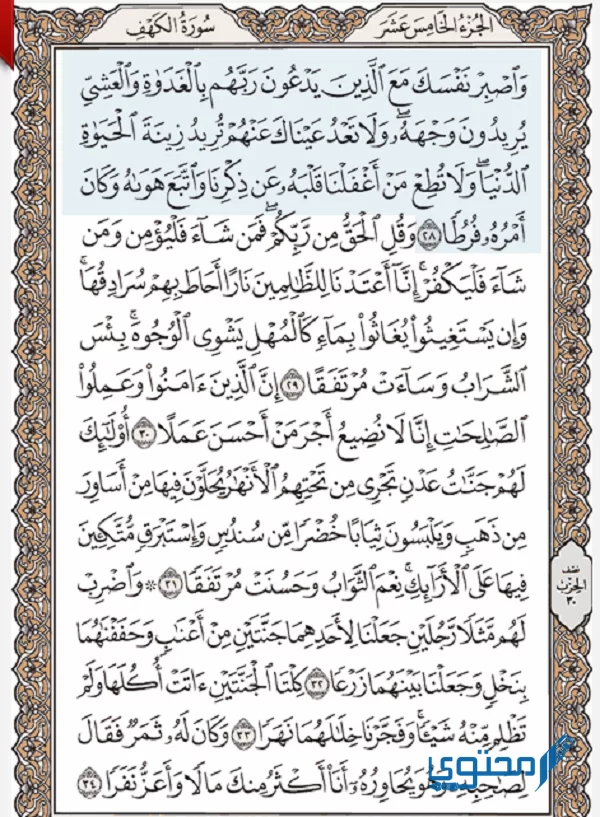 الجزء الخامس عشر
سورة الكهف
وَٱصْبِرْ نَفْسَكَ مَعَ ٱلَّذِينَ يَدْعُونَ رَبَّهُم بِٱلْغَدَوٰةِ وَٱلْعَشِيِّ
يُرِيدُونَ وَجْهَهُۥۖ وَلَا تَعْدُ عَيْنَاكَ عَنْهُمْ تُرِيدُ زِينَةَ ٱلْحَيَوٰةِ
ٱلدُّنْيَاۖ وَلَا تُطِعْ مَنْ أَغْفَلْنَا قَلْبَهُۥ عَن ذِكْرِنَا وَٱتَّبَعَ هَوَىٰهُ وَكَانَ
أَمْرُهُۥ فُرُطًا ٢٨ وَقُلِ ٱلْحَقُّ مِن رَّبِّكُمْۖ فَمَن شَآءَ فَلْيُؤْمِن وَمَن
شَآءَ فَلْيَكْفُرْۚ إِنَّآ أَعْتَدْنَا لِلظَّٰلِمِينَ نَارًا أَحَاطَ بِهِمْ سُرَادِقُهَاۚ
وَإِن يَسْتَغِيثُوا۟ يُغَاثُوا۟ بِمَآءٍ كَٱلْمُهْلِ يَشْوِى ٱلْوُجُوهَۚ بِئْسَ
ٱلشَّرَابُ وَسَآءَتْ مُرْتَفَقًا ٢٩ إِنَّ ٱلَّذِينَ ءَامَنُوا۟ وَعَمِلُوا۟
ٱلصَّٰلِحَٰتِ إِنَّا لَا نُضِيعُ أَجْرَ مَنْ أَحْسَنَ عَمَلًا ٣٠ أُو۟لَٰٓئِكَ
لَهُمْ جَنَّٰتُ عَدْنٍ تَجْرِى مِن تَحْتِهِمُ ٱلْأَنْهَٰرُ يُحَلَّوْنَ فِيهَا مِنْ أَسَاوِرَ
مِن ذَهَبٍ وَيَلْبَسُونَ ثِيَابًا خُضْرًا مِّن سُندُسٍ وَإِسْتَبْرَقٍ مُّتَّكِـِٔينَ
فِيهَا عَلَى ٱلْأَرَآئِكِۚ نِعْمَ ٱلثَّوَابُ وَحَسُنَتْ مُرْتَفَقًا ٣١ ۞ وَٱضْرِبْ
لَهُم مَّثَلًا رَّجُلَيْنِ جَعَلْنَا لِأَحَدِهِمَا جَنَّتَيْنِ مِنْ أَعْنَٰبٍ وَحَفَفْنَٰهُمَا
بِنَخْلٍ وَجَعَلْنَا بَيْنَهُمَا زَرْعًا ٣٢ كِلْتَا ٱلْجَنَّتَيْنِ ءَاتَتْ أُكُلَهَا وَلَمْ
تَظْلِم مِّنْهُ شَيْـًٔاۚ وَفَجَّرْنَا خِلَٰلَهُمَا نَهَرًا ٣٣ وَكَانَ لَهُۥ ثَمَرٌ فَقَالَ
لِصَٰحِبِهِۦ وَهُوَ يُحَاوِرُهُۥٓ أَنَا۠ أَكْثَرُ مِنكَ مَالًا وَأَعَزُّ نَفَرًا ٣٤
نصف
الحزب
٣٠
محتوى